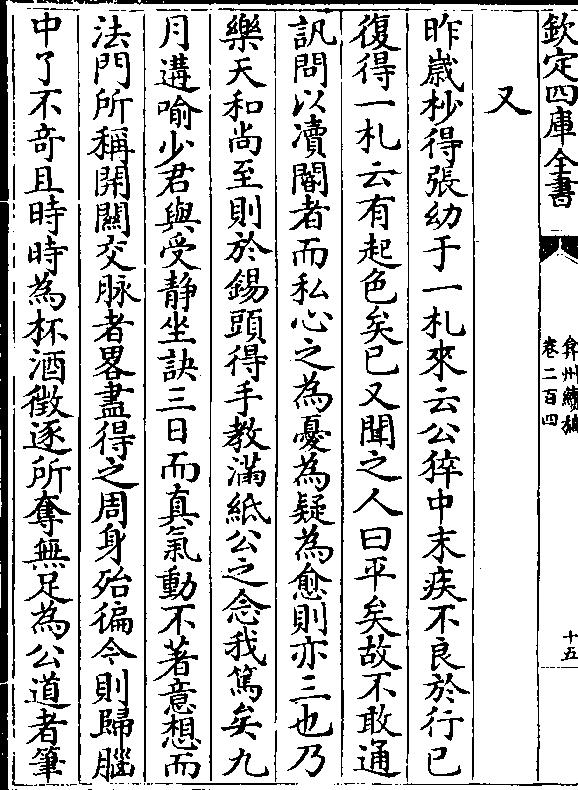 欽定四庫全書
弇州續稿
卷二百四
十五
又
昨歲杪得張幼于一札來云公猝中末疾不良於行已
復得一札云有起色矣已又聞之人曰平矣故不敢通
訊問以瀆閽者而私心之為憂為疑為愈則亦三也乃
樂天和尚至則於錫頭得手教滿紙公之念我篤矣九
月遘喻少君與受靜坐訣三日而真氣動不著意想而
法門所稱開關交脉者畧盡得之周身殆徧今則歸腦
中了不竒且時時為杯酒徵逐所奪無足為公道者筆